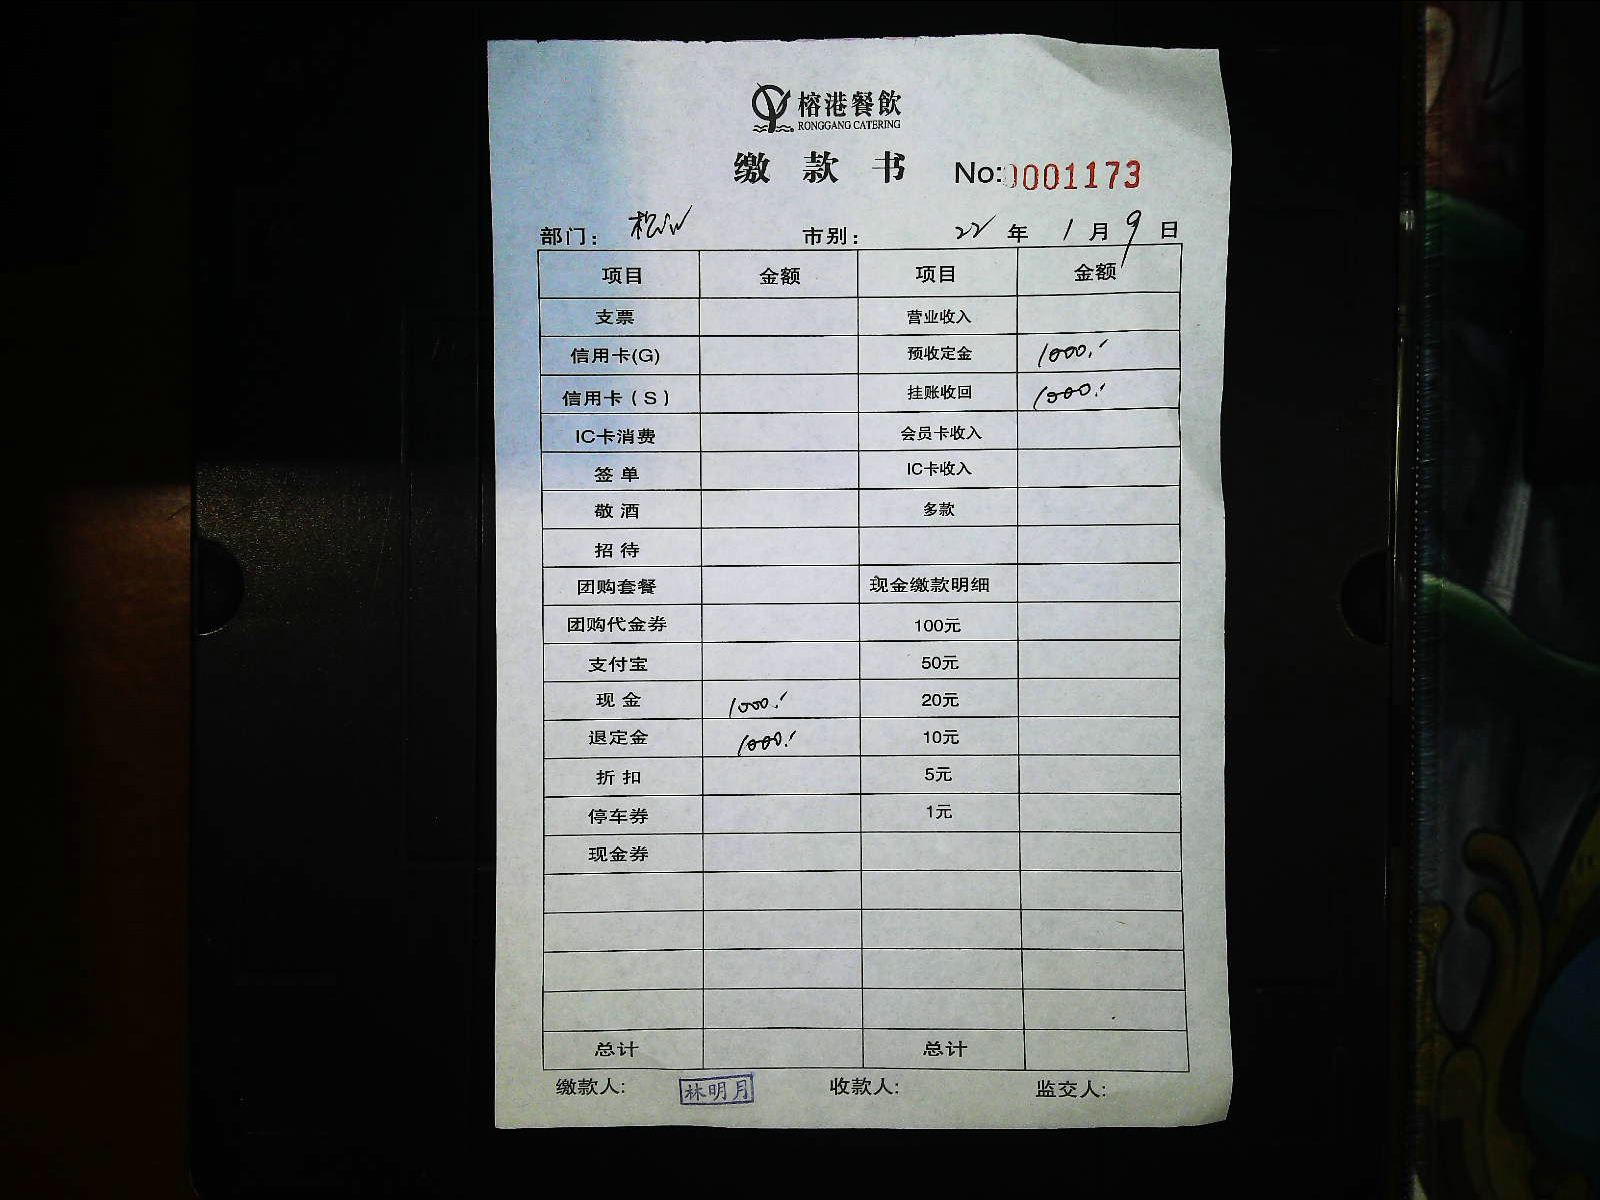 榕港餐飲
RONGGANG CATERING
缴款书 No:0001173
部门: 市别: 22年1月9日
项目 金额 项目 金额
支票 营业收入
信用卡(G) 预收定金 1000.-
信用卡(S) 挂账收回 1000.-
IC卡消费 会员卡收入
签单 IC卡收入
敬酒 多款
招待
团购套餐 现金缴款明细
团购代金券 100元
支付宝 50元
现金 1000.- 20元
退定金 1000.- 10元
折扣 5元
停车券 1元
现金券
总计 总计
缴款人: 林明月 收款人: 监交人: